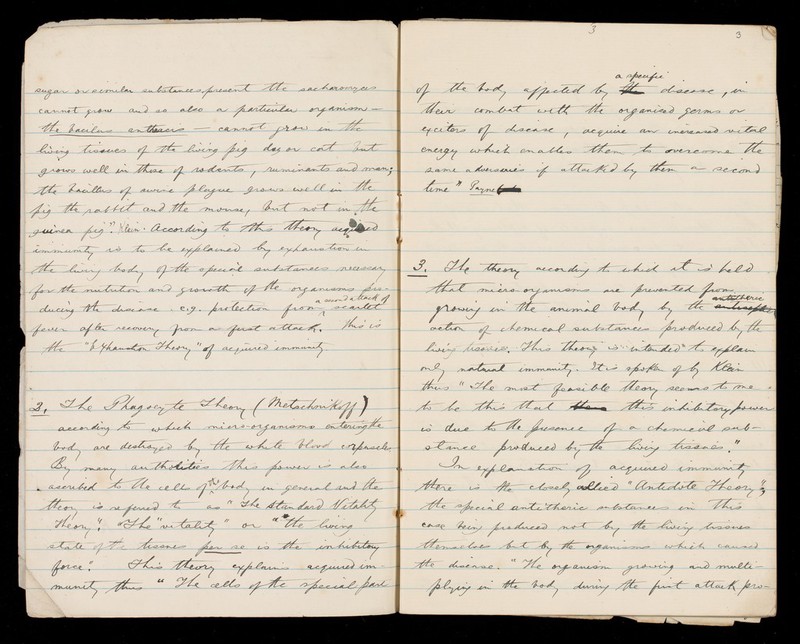 sugar or similar substances present the sacharomyces
cannot grow and so also a particular organism —
the bacilus anthracis — cannot grow in the
living tissues of the living pig dog or cat but
grows well in those of rodents, ruminants and man;
the bacillus of swine plague grows well in the
pig the rabbit and the mouse, but not in the
guinea pig". Klein. According to this theory acquired
immunity is to be explained by exhaustion in
the living body of the special substances necessary
for the nutrition and growth of the organisms pro-
ducing the disease. e.g. protection from a second attack of scarlet
fever after recovery from a first attack. This is
the "Exhaustion Theory" of acquired immunity
2. The Phagocyte Theory (Metschnikoff)
according to which micro-organisms entering the
body are destroyed by the white blood corpuscles
By many authorities this power is also
ascribed to the cells of the body in general and the
theory is referred to as "The Standard Vitality
Theory". "The "vitality" or "the living
state of the tissues per se is the inhibitory
force". This theory explains acquired im-
munity thus "The cells of the special part
3
3
of the body affected by a specific disease, in
their combat with the organised germs or
exciters of disease, acquire an increased vital
energy which enables them to overcome the
same adversaries if attacked by them a second
time" Payne
3. The theory according to which it is held
that micro-organisms are prevented from
growing in the animal body by the antitheric
action of chemical substances produced by the
living tissues. This theory is "intended" to explain
only natural immunity. It is spoken of by Klein
thus "The most feasible theory seems to me
to be this that this inhibitory power
is due to the presence of a chemical sub-
stance produced by the living tissues."
In explanation of acquired immunity
there is the closely allied "Antidote Theory"
the special antitheric substances in this
case being produced not by the living tissues
themselves but by the organisms which caused
the disease. "The organism growing and multi-
plying in the body during the first attack pro-